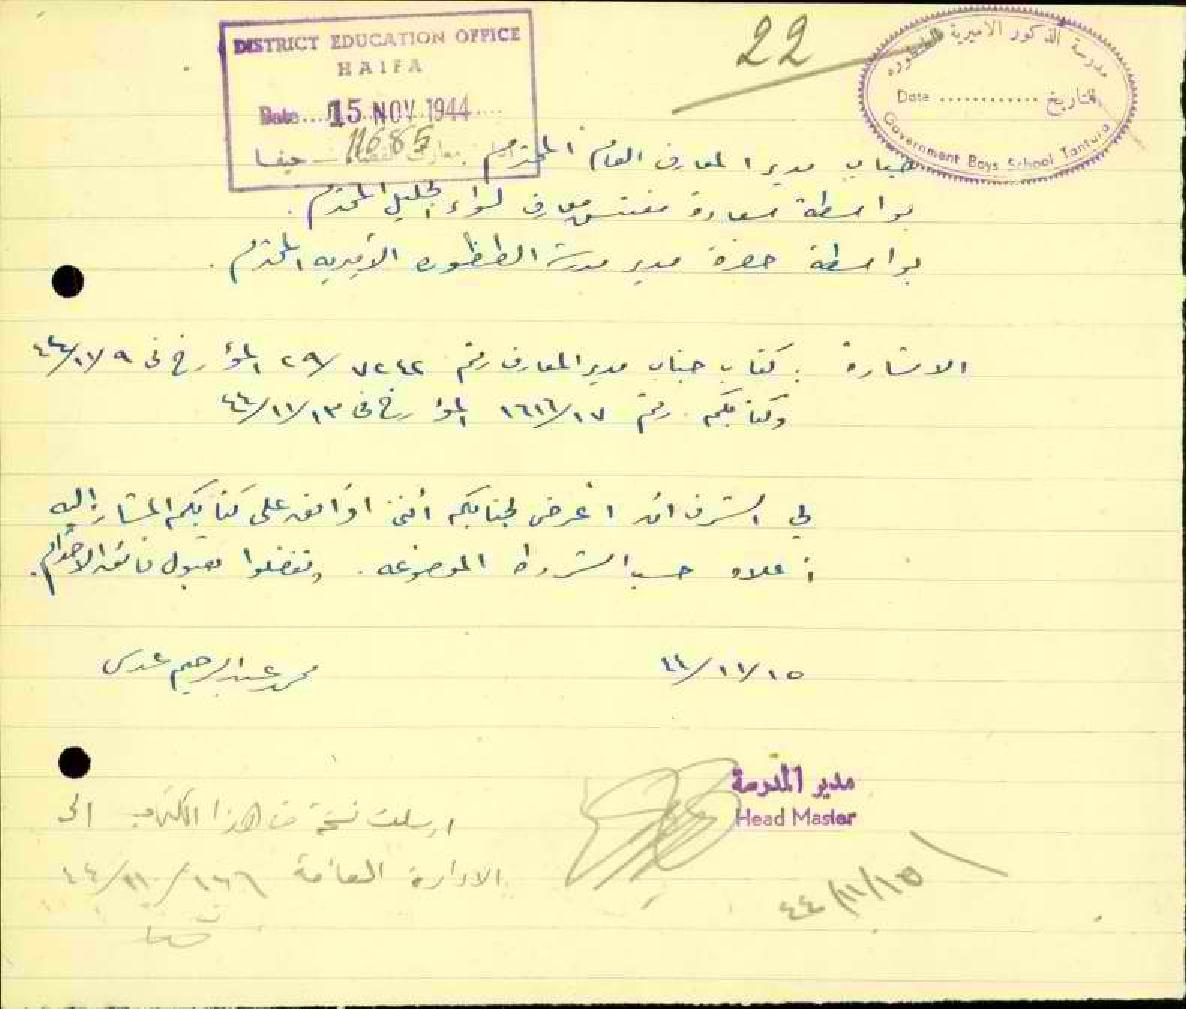 DISTRICT EDUCATION OFFICE
HAIFA
Date....15 NOV 1944
11685
معارف حيفا
22
مدرسة الذكور الاميرية الطنطوره
Date ............ التاريخ
Government Boys School Tantura
جناب مدير المعارف العام المحترم
بواسطة سعادة مفتش معارف لواء الجليل المحترم.
بواسطة حضرة مدير مدرسة الطنطوره الأميريه المحترم.
الاشارة : كتاب جناب مدير المعارف رقم ٧٢٤٢ /٢٩ المؤرخ في ٩/١١/٤٤
وكتابكم رقم ١٦١٦/١٧ المؤرخ في ١٣/١١/٤٤
لي الشرف ان أعرض لجنابكم أنني اوافق على كتابكم المشار إليه
أعلاه حسب الشروط الموضوعه. وتفضلوا بقبول فائق الاحترام.
١٥/١١/٤٤
محمد عبد الرحيم عدس
مدير المدرسة
Head Master
١٥/١١/٤٤
ارسلت نسخة من هذا الكتاب الى
الادارة العامة ١٦/١١/٤٤